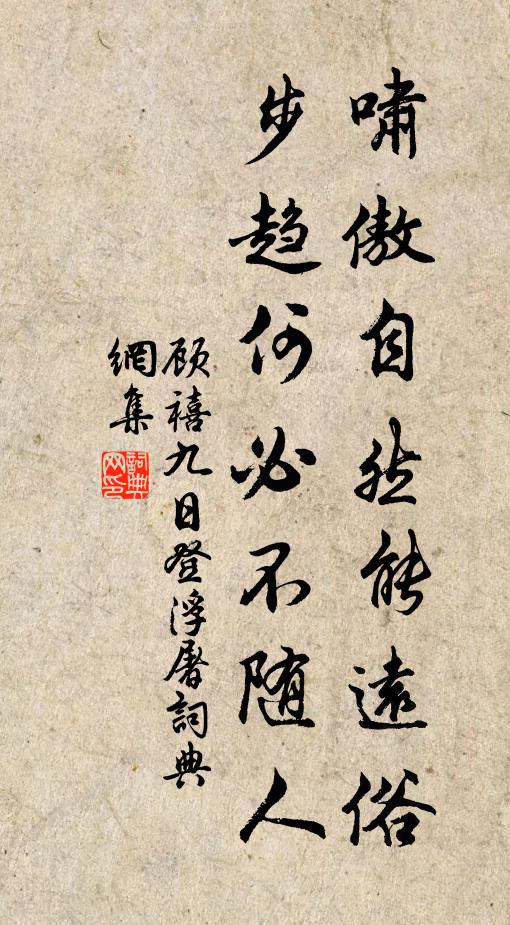 嘯傲自然能遠俗
步趋何必不随人
顾禧九日登浮屠詞典
網集
詞典網印